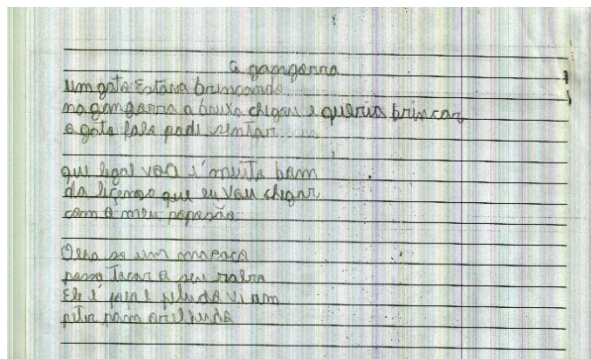 a gangorra
um gato Estava brincando
na gangorra a bruxa chegou e queria brincar
o gato fala podi sentar

qui legal voce é muito bom
da licemso que eu vou chegar
com o meu

Olha so um macaco
posso tocar o seu rabo
Ele é fofo e peludo vi um
peter pam orelhudo